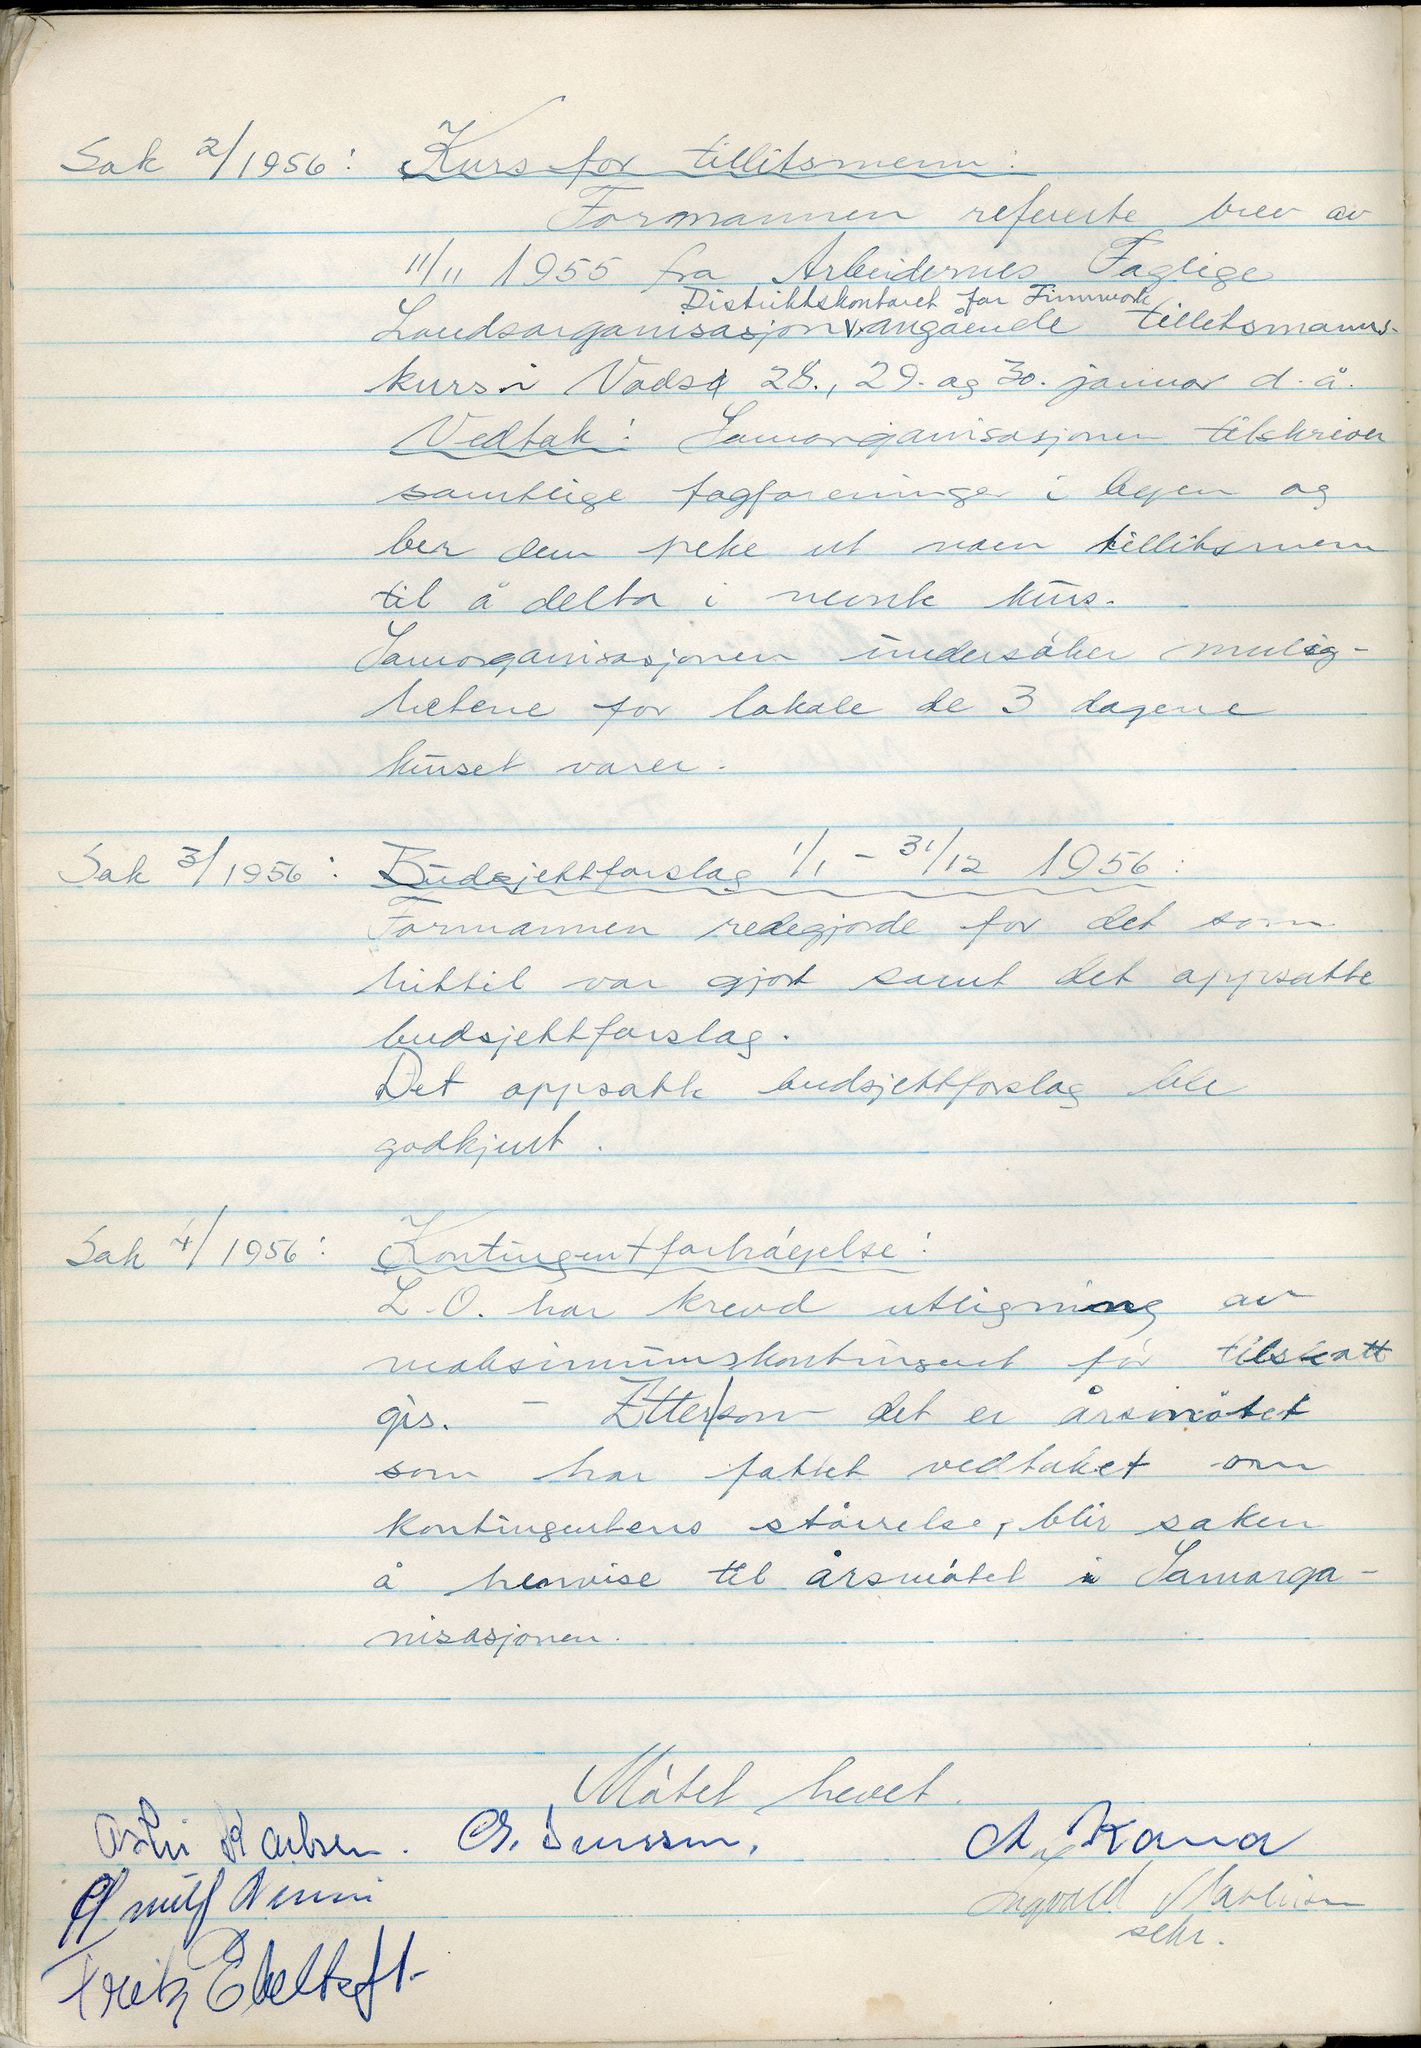 Sak 2/1956: Kurs for tillitsmenn:
Formannen refererte brev av
11/11 1955 fra Arbeidernes Faglige
Distriktskontoret for Finnmark
Landsorganisasjon v angående tillitsmanns-
kurs i Vadsø 28., 29. og 30. januar d.å.
Vedtak: Samorganisasjonen tilskriver
samtlige fagforeninger i byen og
ber dem peke ut noen tillitsmenn
til å delta i nevnte kurs.
Samorganisasjonen undersøker mulig-
hetene for lokale de 3 dagene
kurset varer.
Sak 3/1956: Budsjettforslag 1/1 – 31/12 1956:
Formannen redegjorde for det som
hittil var gjort samt det oppsatte
budsjettforslag.
Det oppsatte budsjettforslag ble
godkjent.
Sak 4/1956: Kontingentforhøyelse:
L.O. har krevd utligning av
maksimumskontingent før tilskott
gis. – Ettersom det er årsmøtet
som har fattet vedtaket om
kontingentens størrelse, blir saken
å henvise til årsmøtet i Samorga-
nisasjonen.
Møtet hevet.
Karlsen. A Kana
Ingvald
sekr.
Fritz Ebeltoft